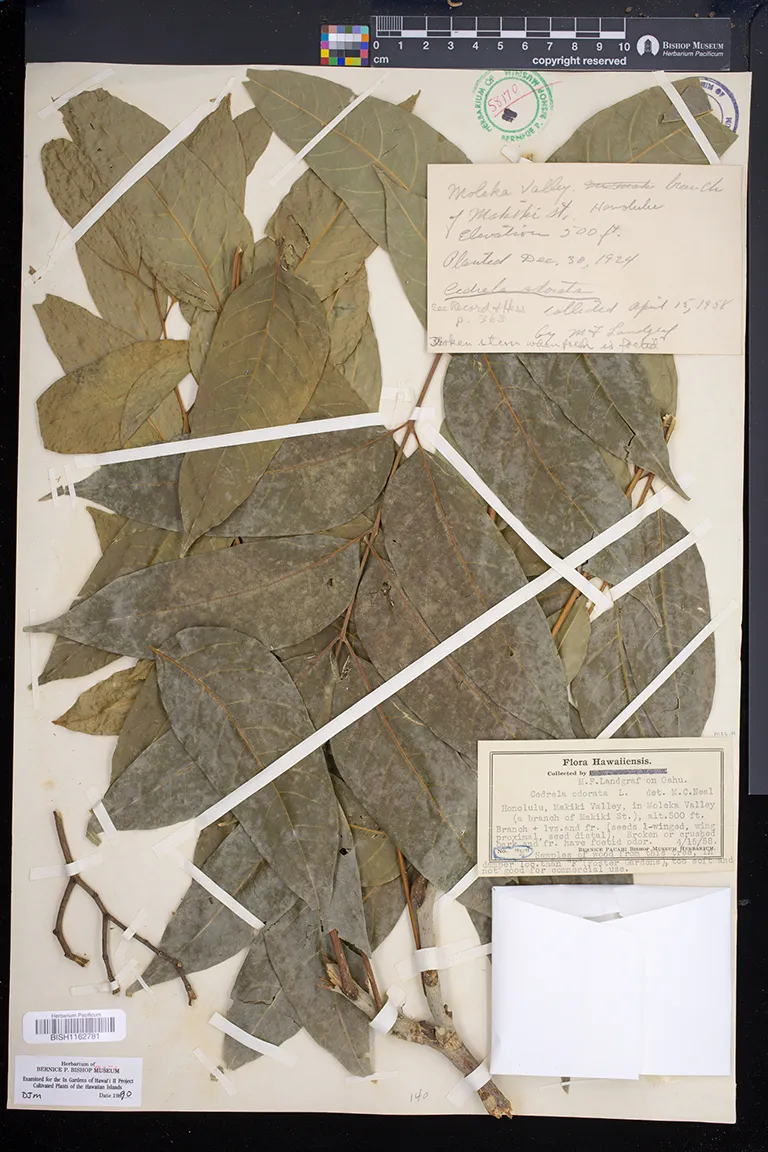 0 1 2 3 4 5 6 7 8 9 10
cm
copyright reserved
BISHOP MUSEUM
Herbarium Pacificum
HERBARIUM OF
BERNICE P. BISHOP MUSEUM
58170
Moleka Valley. branch
of Makiki St. Honolulu
Elevation 500 ft.
Planted Dec. 30, 1924
Cedrela odorata
See Record & Hess
p. 363
collected April 15, 1958
by M F Landgraf
Broken stem when fresh is foetid
Flora Hawaiiensis.
Collected by
M.F.Landgraf on Oahu.
Cedrela odorata L. det. M.C.Neal
Honolulu, Makiki Valley, in Moleka Valley
(a branch of Makiki St.), alt.500 ft.
Branch + lvs.and fr. (seeds 1-winged, wing
proximal, seed distal). Broken or crushed
bark and fr. have foetid odor. 4/15/58.
No.
BERNICE PAUAHI BISHOP MUSEUM HERBARIUM.
Samples of wood from this tree, in
(Foster Gardens), too soft and
not good for commercial use.
Herbarium Pacificum
BISH1162781
Herbarium of
BERNICE P. BISHOP MUSEUM
Examined for the In Gardens of Hawai'i II Project
Cultivated Plants of the Hawaiian Islands
DJM Date 1990
140